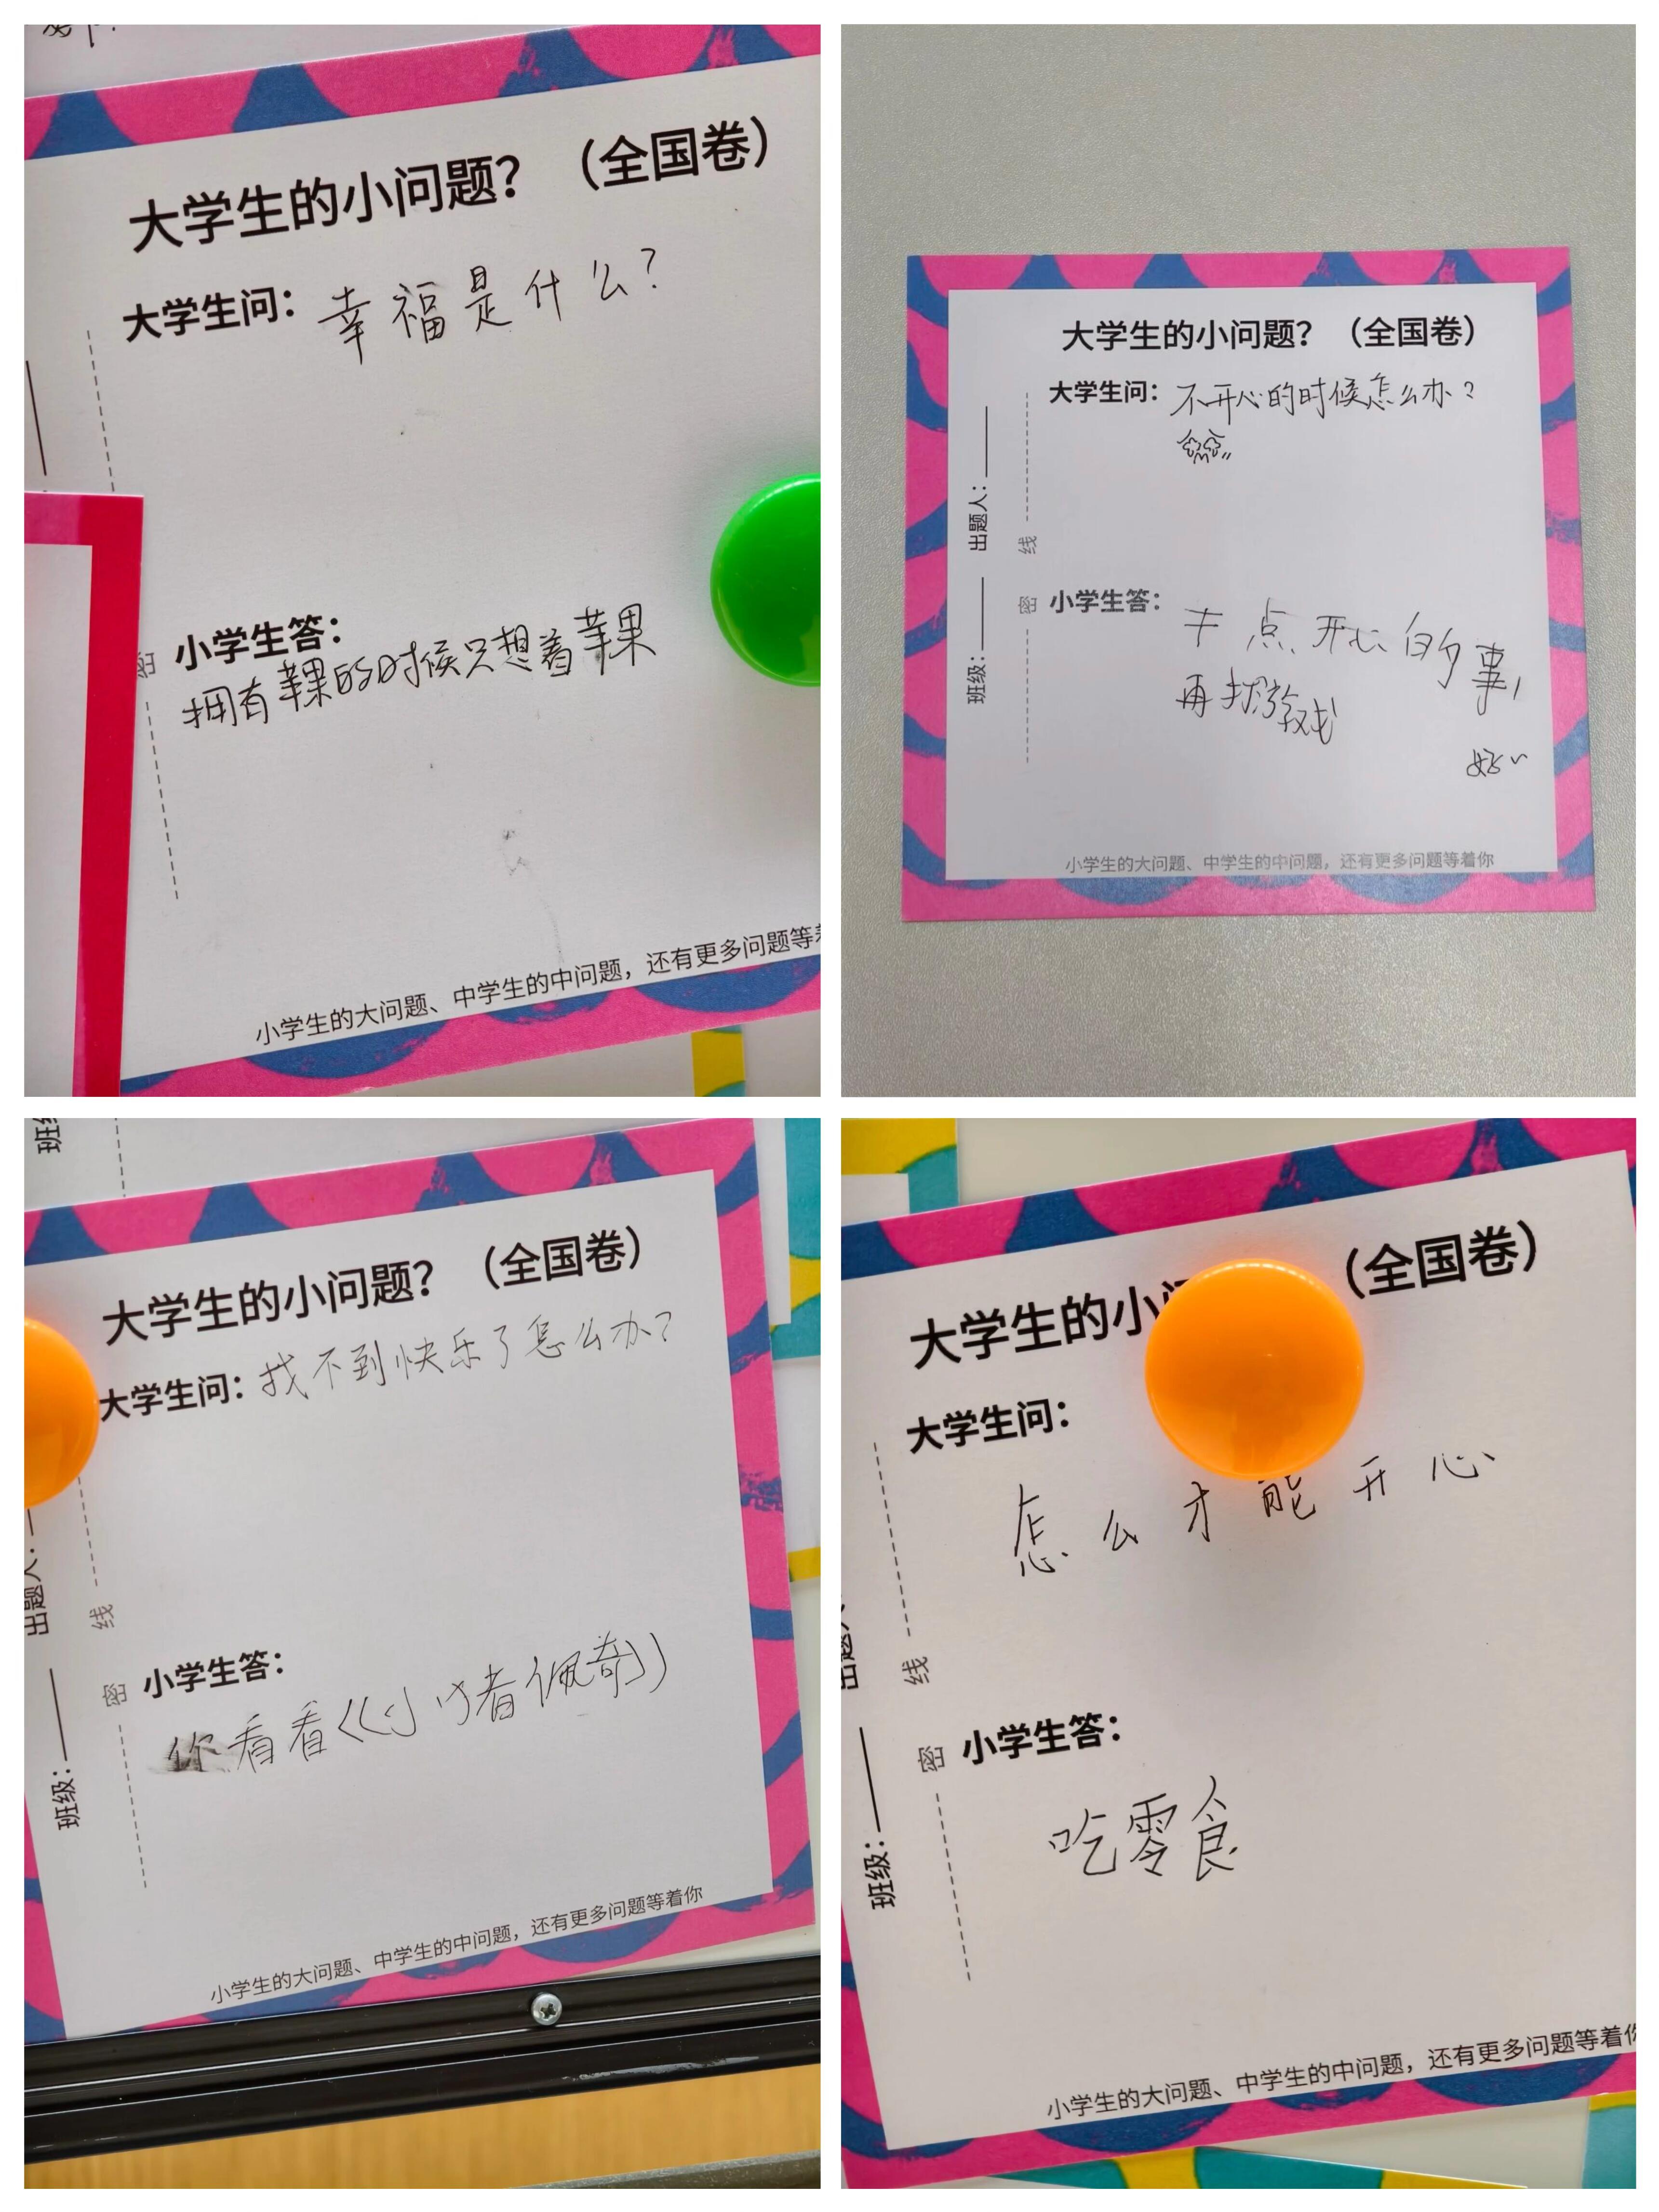 大学生的小问题？（全国卷）
大学生问：幸福是什么？
小学生答：
拥有苹果的时候只想着苹果
小学生的大问题、中学生的中问题，还有更多问题等
大学生的小问题？（全国卷）
大学生问：不开心的时候怎么办？
出题人：
线
密
班级：
小学生答：
干点开心的事，
再打游戏
好~
小学生的大问题、中学生的中问题，还有更多问题等着你
班
大学生的小问题？（全国卷）
大学生问：找不到快乐了怎么办？
出题人：
线
密
班级：
小学生答：
你看看《小猪佩奇》
小学生的大问题、中学生的中问题，还有更多问题等着你
大学生的小（全国卷）
大学生问：
怎么才能开心
线
密
班级：
小学生答：
吃零食
小学生的大问题、中学生的中问题，还有更多问题等着你